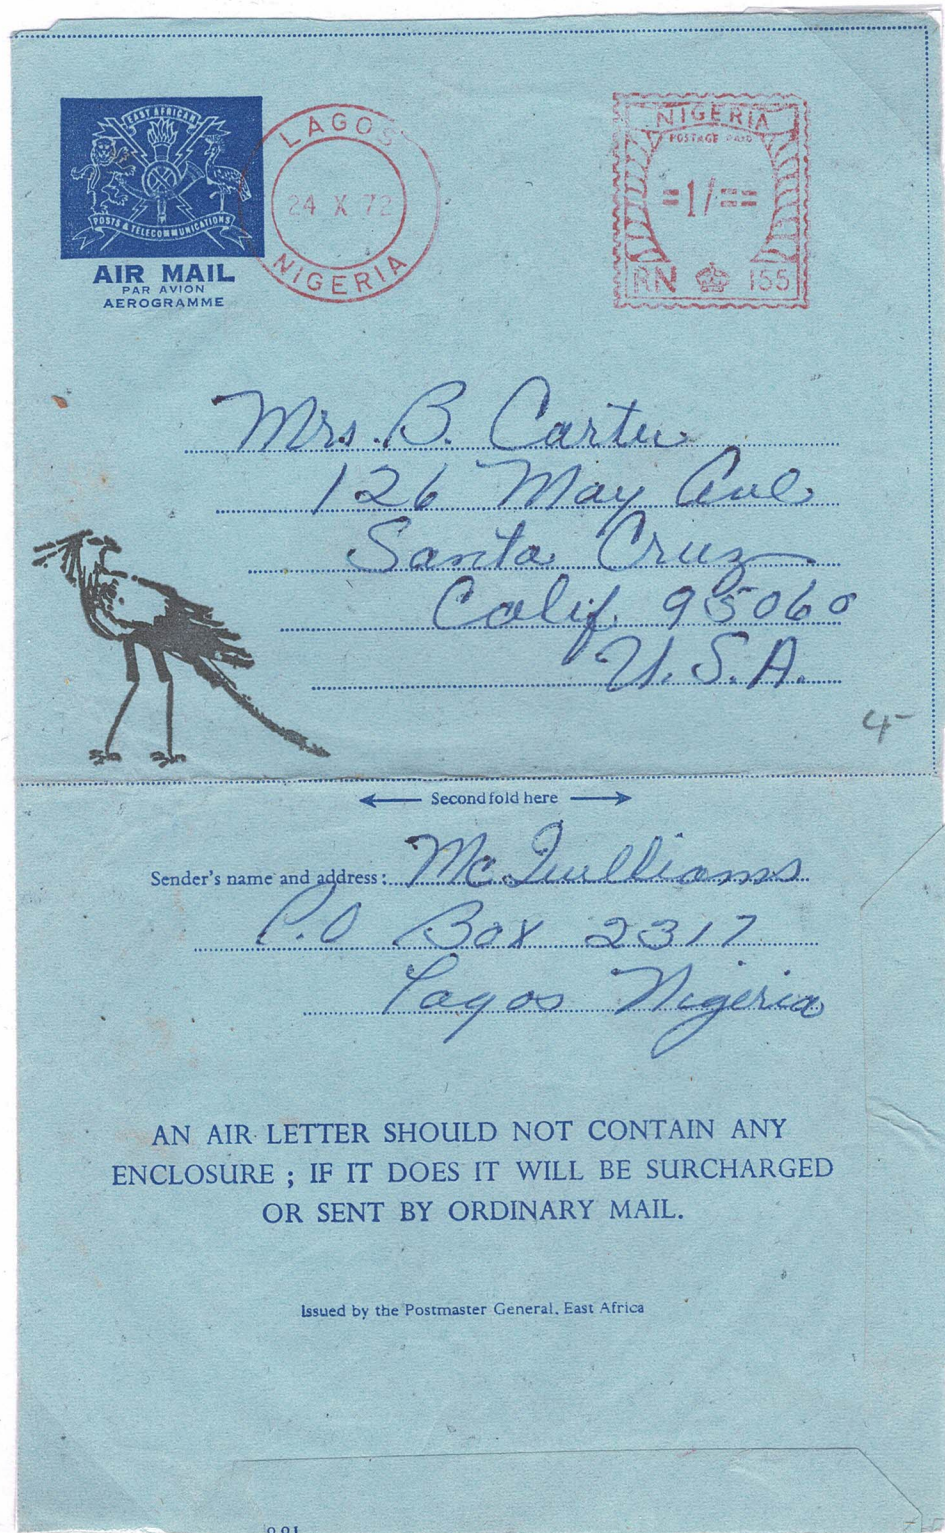 EAST AFRICAN
POSTS & TELECOMMUNICATIONS
AIR MAIL
PAR AVION
AEROGRAMME
LAGOS
24 X 72
NIGERIA
NIGERIA
POSTAGE PAID
=1/-==
RN 155
Mrs. B. Carter
126 May Ave
Santa Cruz
Calif. 95060
U.S.A.
Second fold here
Sender's name and address: McJuilliams
P.O Box 2317
Lagos Nigeria
AN AIR LETTER SHOULD NOT CONTAIN ANY
ENCLOSURE ; IF IT DOES IT WILL BE SURCHARGED
OR SENT BY ORDINARY MAIL.
Issued by the Postmaster General, East Africa